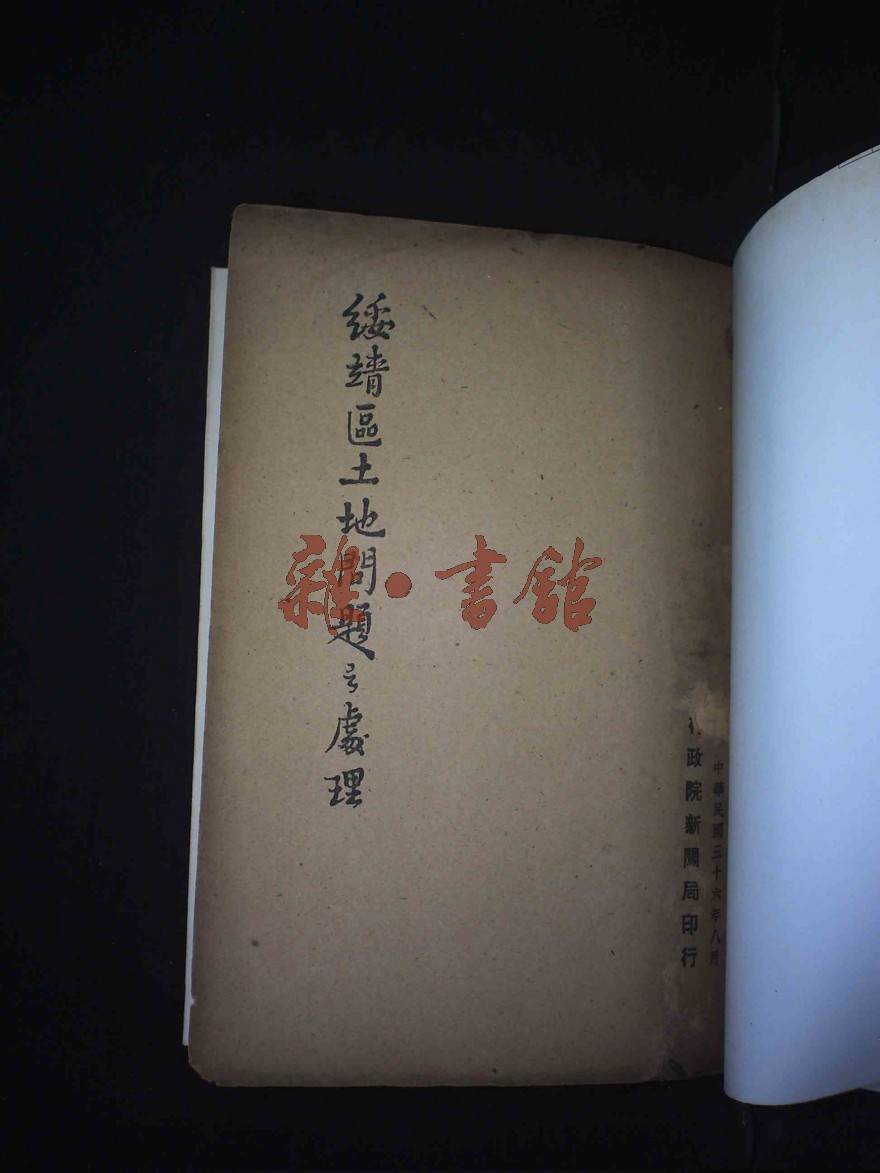 中華民國三十六年八月
行政院新聞局印行
綏靖區土地問題之處理
雜·書館